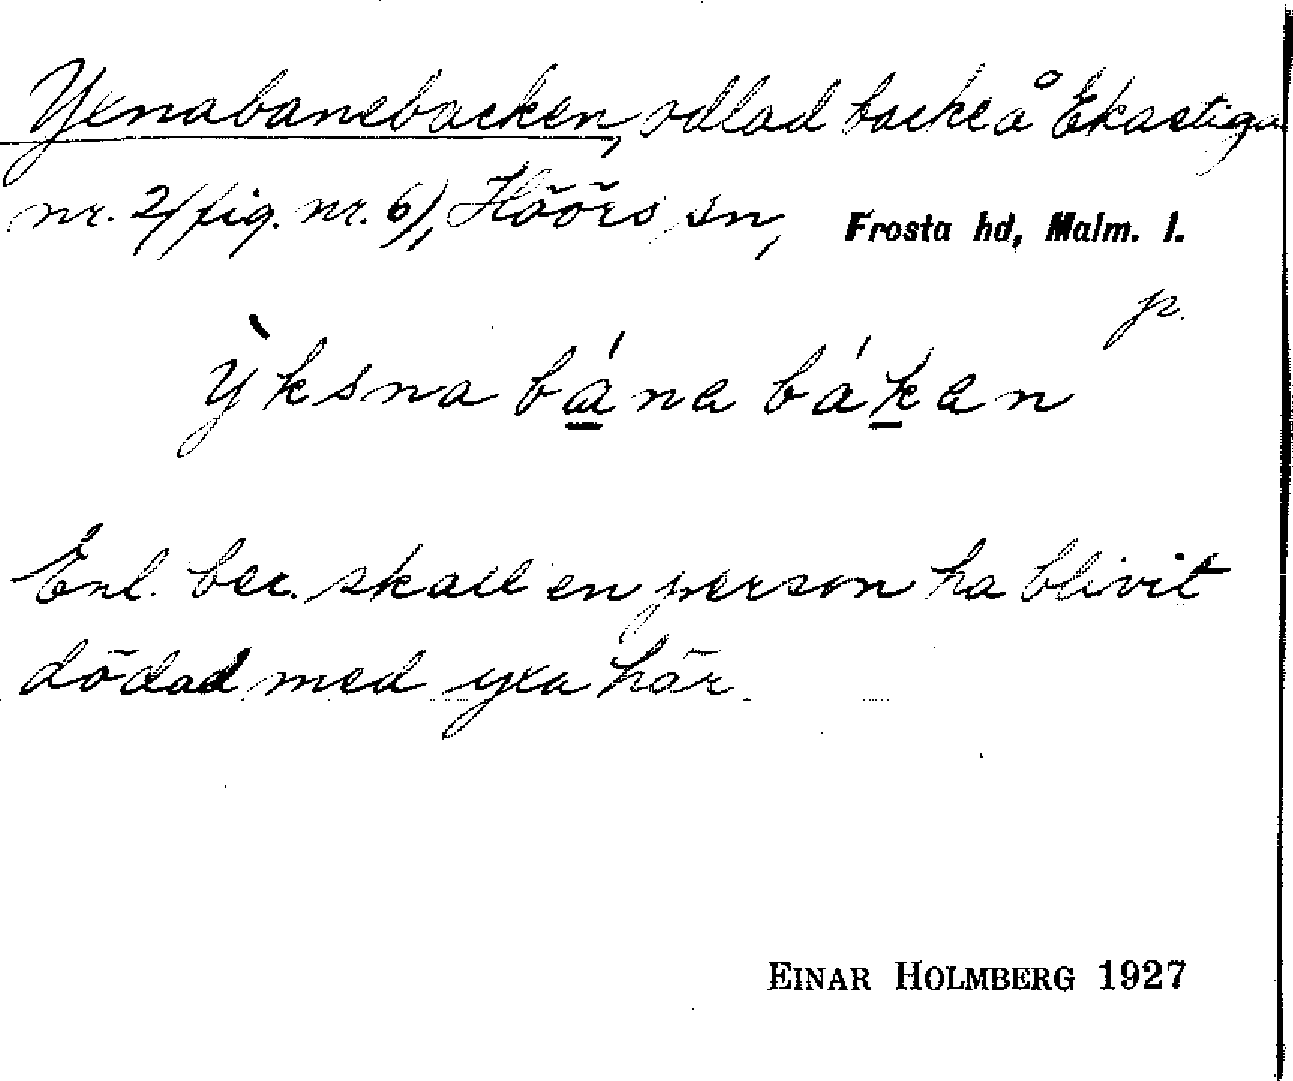 Yxnabanebacken, odlad backe å Ekastiga
nr. 2 (fig. nr. 6), Höörs sn, Frosta hd, Malm. l.
p.
ỳksna bána báken
Enl. ber. skall en person ha blivit
dödad med yxa här.
EINAR HOLMBERG 1927